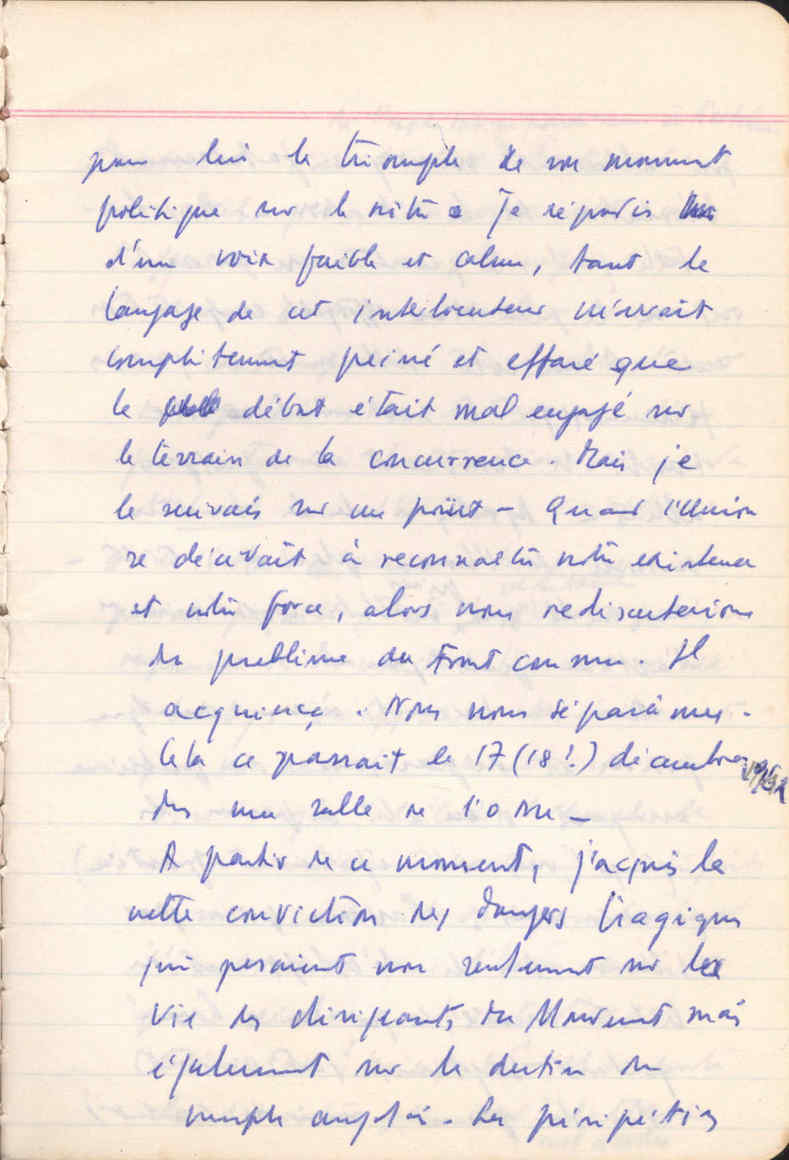 pour lui le triomphe de son mouvement
politique sur le nôtre. Je répondis
d'une voix faible et calme, tant le
langage de cet interlocuteur m'avait
complètement peiné et effaré que
le début était mal engagé sur
le terrain de la concurrence. Mais je
le suivais sur un point - Quand l'Union
se décidait à reconnaître notre existence
et notre force, alors nous rediscuterions
du problème du Front commun. Il
acquiesça. Nous nous séparâmes.
Cela ce passait le 17 (18!) décembre
dans une salle de l'O
A partir de ce moment, j'acquis la
nette conviction des dangers tragiques
qui pesaient non seulement sur la
vie des dirigeants du Mouvement mais
également sur le destin du
peuple angolais. Les péripéties